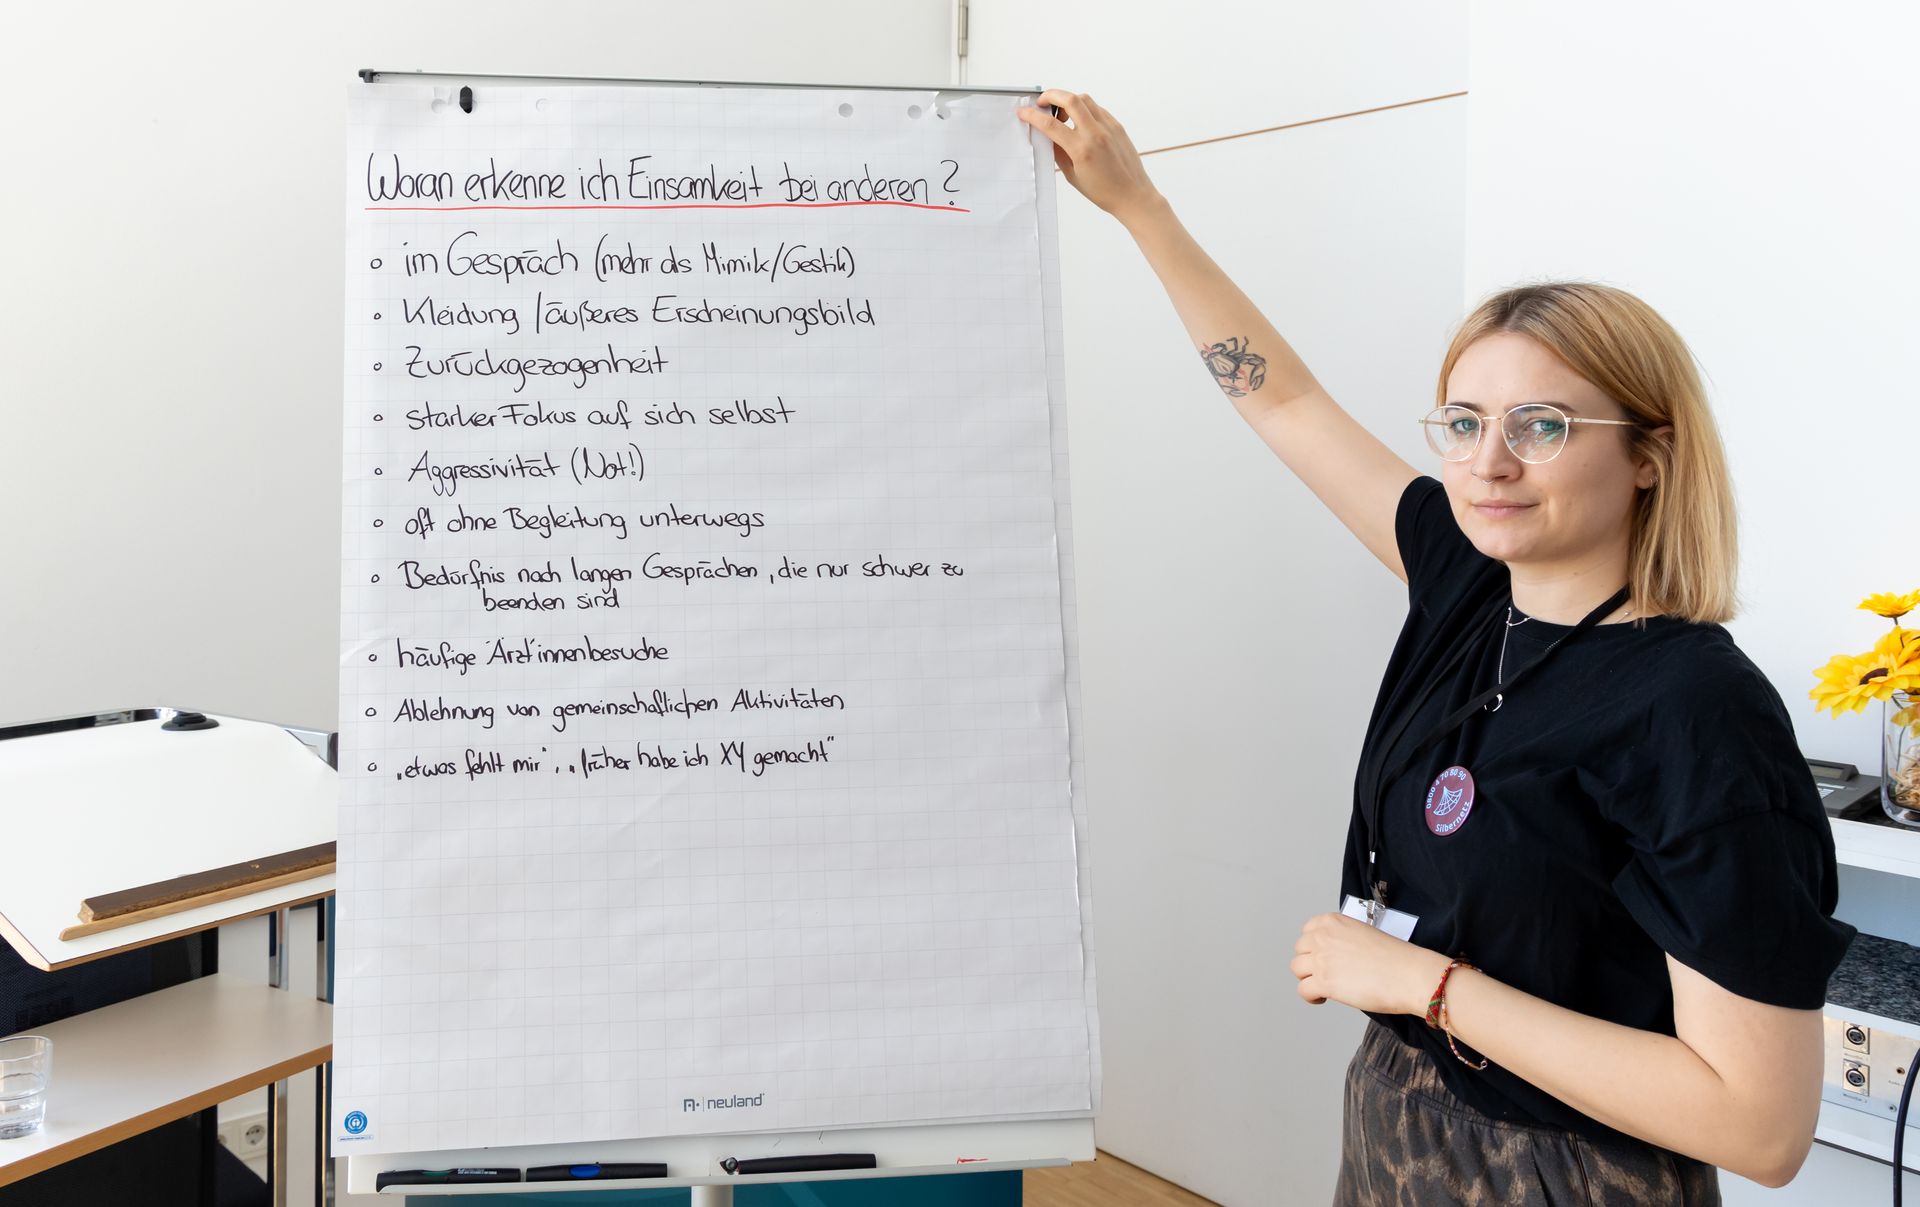 Woran erkenne ich Einsamkeit bei anderen?
• im Gespräch (mehr als Mimik/Gestik)
• Kleidung /äußeres Erscheinungsbild
• Zurückgezogenheit
• starker Fokus auf sich selbst
• Aggressivität (Not!)
• oft ohne Begleitung unterwegs
• Bedürfnis nach langen Gesprächen, die nur schwer zu
beenden sind
• häufige Ärzt*innenbesuche
• Ablehnung von gemeinschaftlichen Aktivitäten
• „etwas fehlt mir“, „früher habe ich XY gemacht“
neuland
0800 4 70 80 90
Silbernetz